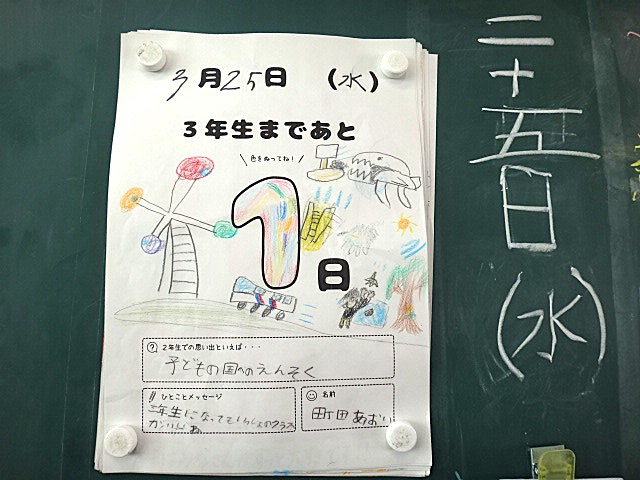 3月25日 (水)
3年生まであと
色をぬってね!
1日
? 2年生での思い出といえば・・・
子どもの国へのえんそく
ひとことメッセージ
三年生になってもいっしょのクラス
名前
町田あおい
二十五日(水)